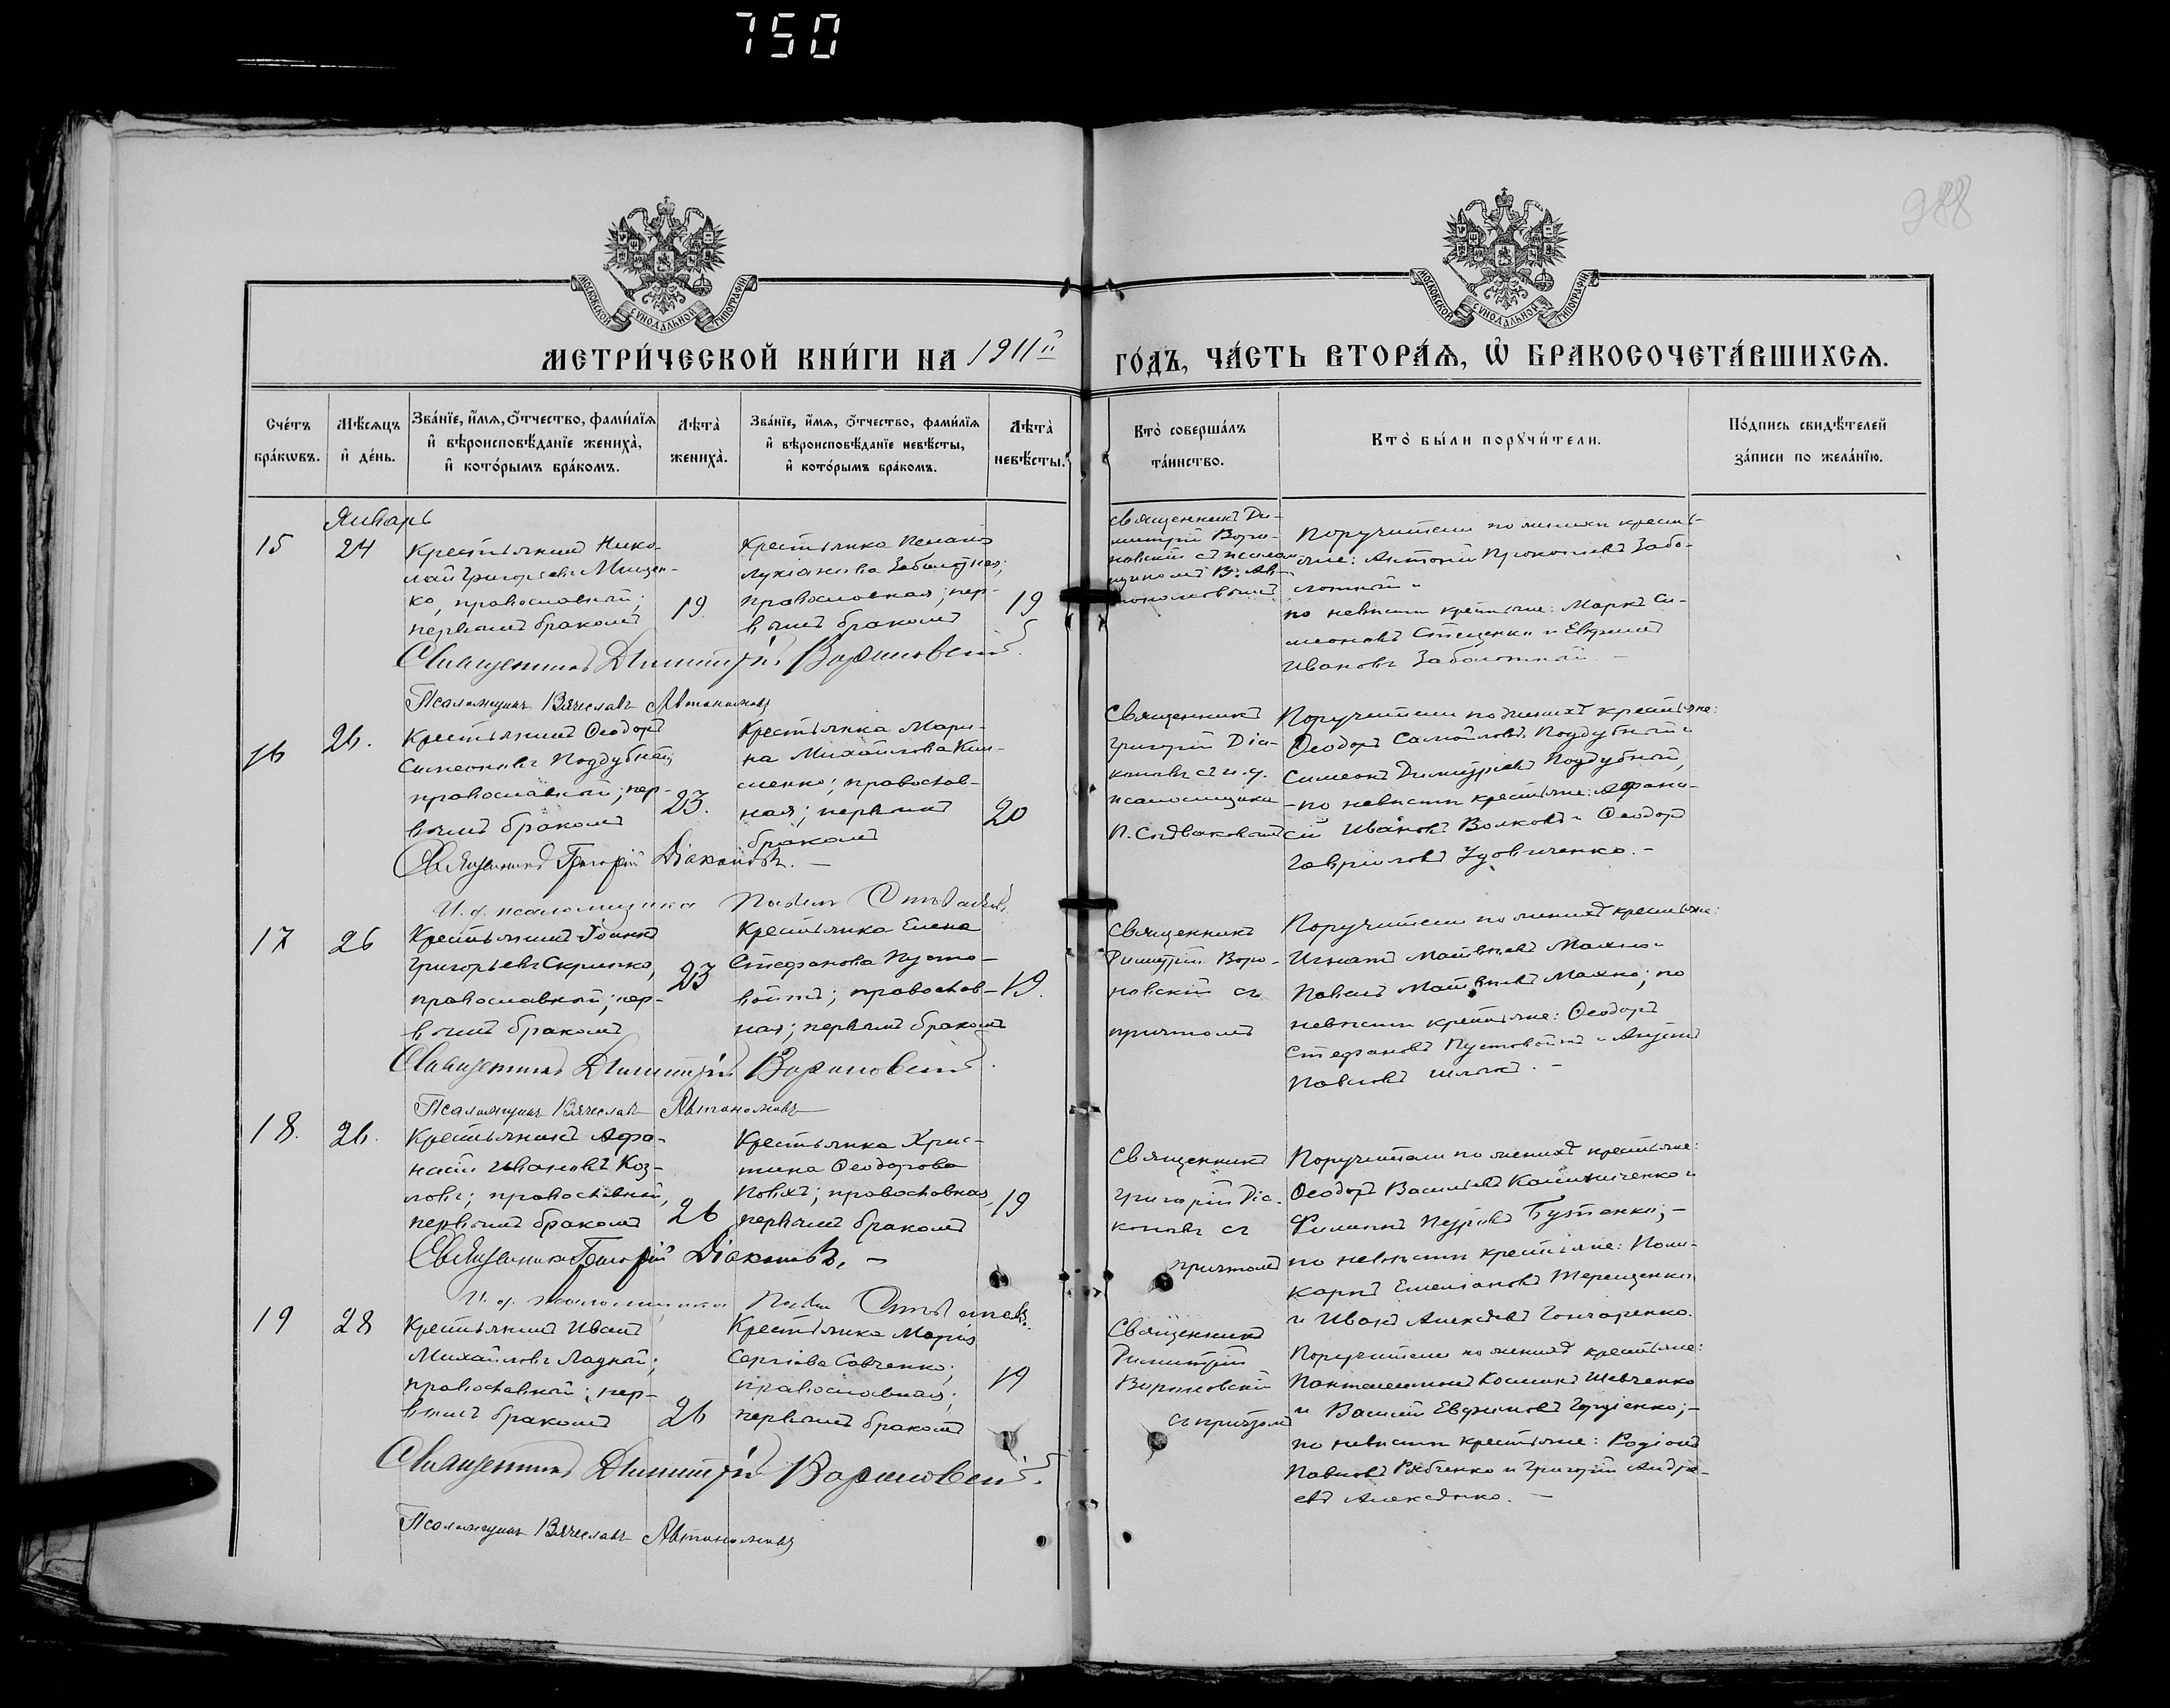 750
988
МОСКОВСКОЙ СѴНОДАЛЬНОЙ ТИПОГРАФІИ
МОСКОВСКОЙ СѴНОДАЛЬНОЙ ТИПОГРАФІИ
МЕТРИ́ЧЕСКОЙ КНИ́ГИ НА 1911й
ГО́ДЪ, ЧА́СТЬ ВТОРА́Ѧ, Ѡ҆ БРАКОСОЧЕТА́ВШИХСѦ.
Сче́тъ
бра́кѡвъ.
Мѣ́сѧцъ
и҆ де́нь.
Зва́нїе, и҆́мѧ, ѻ҆́тчество, фами́лїѧ
и҆ вѣроисповѣ́данїе жениха̀,
и҆ кото́рымъ бра́комъ.
Лѣ́та̀
жениха̀.
Зва́нїе, и҆́мѧ, ѻ҆́тчество, фами́лїѧ
и҆ вѣроисповѣ́данїе невѣ́сты,
и҆ кото́рымъ бра́комъ.
Лѣ́та̀
невѣ́сты.
Кто̀ соверша́лъ
та́инство.
Кто̀ бы́ли порꙋчи́тели.
По́дпись свидѣ́телей
за́писи по жела́нїю.
Январь
15
24
Крестьянинъ Нико-
лай Григорьевъ Мищен-
ко, православный;
первымъ бракомъ
19
Крестьянка Пелагія
Лукіанова Заболотная;
православная; пер-
вымъ бракомъ
19
Священникъ Ди-
митрій Воро-
новскій съ псалом-
щикомъ В. Ав-
тономовымъ
Поручители по женихѣ кресть-
яне: Антоній Прокопіевъ Забо-
лотный и
по невѣстѣ крестьяне: Маркъ Си-
меоновъ Стеценко и Евфимій
Ивановъ Заболотный. –
Священникъ Димитрій Вороновскій.
Псаломщикъ Вячеславъ Автономовъ
16
26.
Крестьянинъ Ѳеодоръ
Симеоновъ Поддубный
православный; пер-
вымъ бракомъ
23.
Крестьянка Мари-
на Михайлова
православ-
ная; первымъ
бракомъ
20
Священникъ
Григорій Діа-
коновъ съ и. д.
псаломщика
П.
Поручители по женихѣ крестьяне:
Ѳеодоръ Самойловъ Поддубный и
Симеонъ Димитріевъ Поддубный,
– по невѣстѣ крестьяне: Аѳана-
сій Ивановъ Волковъ и Ѳеодоръ
Гавриловъ Удовиченко. –
Священникъ Григорій Діаконовъ. –
И. д. псаломщика Павелъ
17
26
Крестьянинъ Іоаннъ
Григорьевъ Скрипко,
православный; пер-
вымъ бракомъ
23
Крестьянка Елена
Стефанова Пусто-
войтъ; православ-
ная; первымъ бракомъ
19.
Священникъ
Димитрій Воро-
новскій съ
причтомъ
Поручители по женихѣ крестьяне:
Игнатъ Матвѣевъ Махно и
Павелъ Матвѣевъ Махно; по
невѣстѣ крестьяне: Ѳеодоръ
Стефановъ Пустовойтъ и
Павловъ
Священникъ Димитрій Вороновскій.
Псаломщикъ Вячеславъ Автономовъ
18.
26.
Крестьянинъ Аѳа-
насій Ивановъ Коз-
ловъ; православный,
первымъ бракомъ
26
Крестьянка Хрис-
тина Ѳеодорова
православная,
первымъ бракомъ
19
Священникъ
Григорій Діа-
коновъ съ
причтомъ
Поручители по женихѣ крестьяне:
Ѳеодоръ Васильевъ Калиниченко и
Филиппъ Петровъ Бутенко; –
по невѣстѣ крестьяне: Поли-
карпъ Емеліановъ Терещенко
и Иванъ Алексѣевъ Гончаренко.
Священникъ Григорій Діаконовъ. –
И. д. псаломщика Павелъ
19
28
Крестьянинъ Иванъ
Михайловъ Ладный;
православный; пер-
вымъ бракомъ
26
Крестьянка Марія
Сергіева Савченко;
православная;
первымъ бракомъ
19
Священникъ
Димитрій
Вороновскій
съ причтомъ
Поручители по женихѣ крестьяне:
Пантелеимонъ Косминъ Шевченко
и Василій Евфимовъ Гордіенко; –
по невѣстѣ крестьяне: Родіонъ
Павловъ Рябченко и Григорій Андре-
евъ Алексѣенко. –
Священникъ Димитрій Вороновскій.
Псаломщикъ Вячеславъ Автономовъ